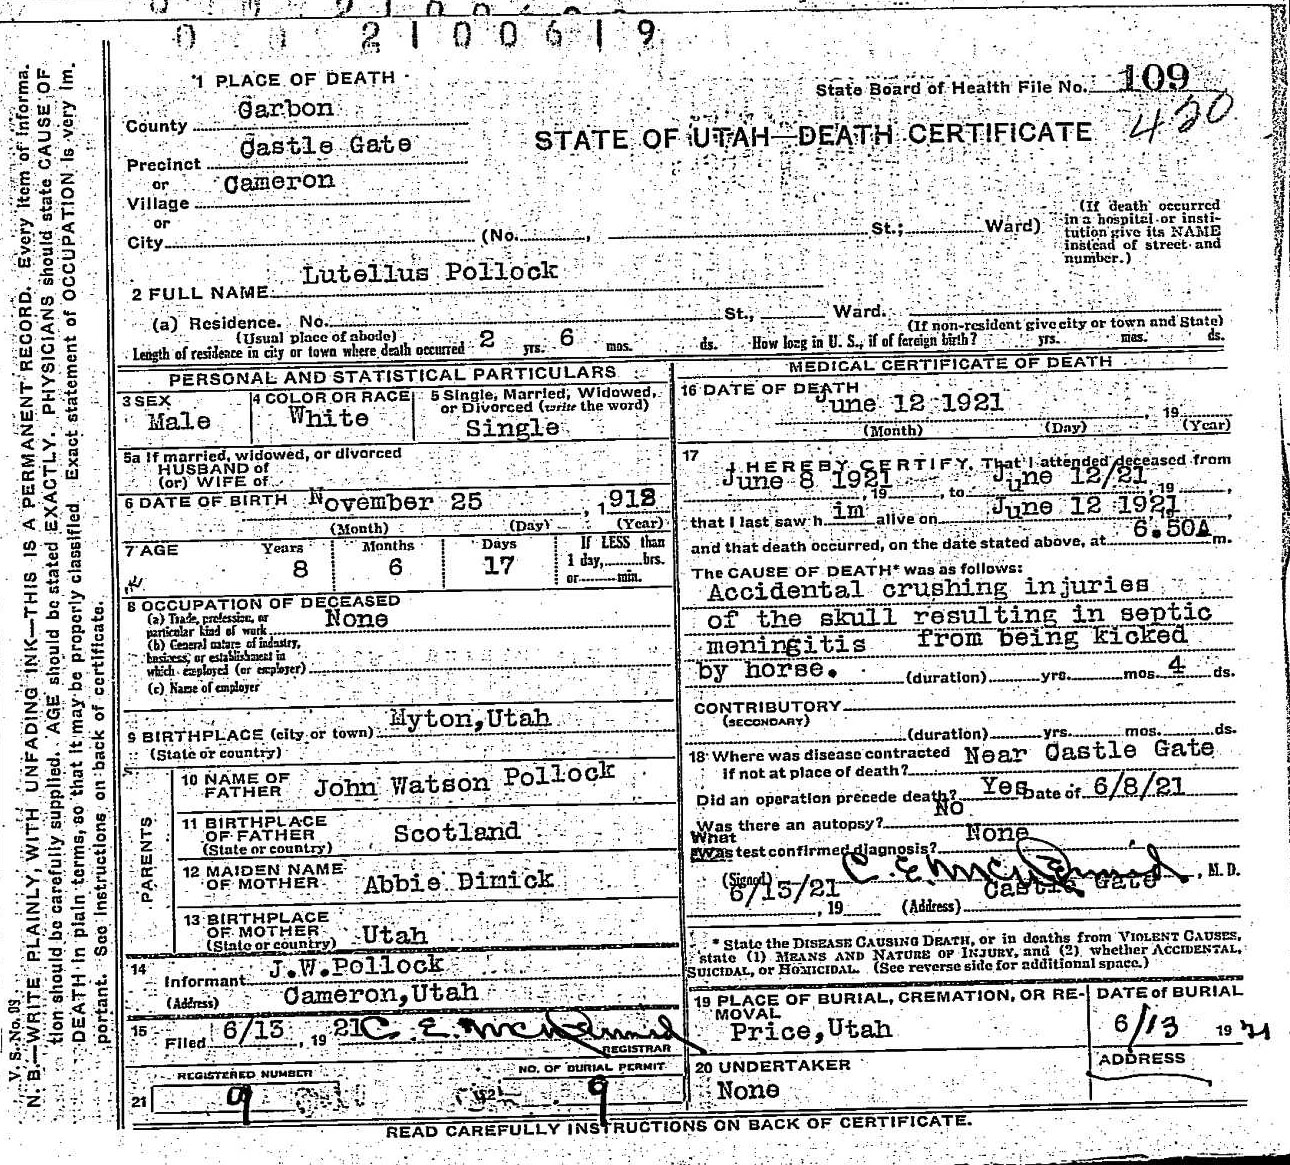 0 0 2100619
1 PLACE OF DEATH
State Board of Health File No. 109
420
County Carbon
STATE OF UTAH—DEATH CERTIFICATE
Precinct Castle Gate
or
Village Cameron
or
City (No. , St.; Ward)
(If death occurred
in a hospital or insti-
tution give its NAME
instead of street and
number.)
2 FULL NAME Lutellus Pollock
(a) Residence. No. St., Ward.
(Usual place of abode) (If non-resident give city or town and State)
Length of residence in city or town where death occurred 2 yrs. 6 mos. ds. How long in U. S., if of foreign birth? yrs. mos. ds.
PERSONAL AND STATISTICAL PARTICULARS
3 SEX
Male
4 COLOR OR RACE
White
5 Single, Married, Widowed,
or Divorced (write the word)
Single
5a If married, widowed, or divorced
HUSBAND of
(or) WIFE of
6 DATE OF BIRTH November 25 , 1912
(Month) (Day) (Year)
7 AGE Years Months Days If LESS than
8 6 17 1 day, hrs.
or min.
8 OCCUPATION OF DECEASED
(a) Trade, profession, or
particular kind of work None
(b) General nature of industry,
business, or establishment in
which employed (or employer)
(c) Name of employer
9 BIRTHPLACE (city or town) Myton, Utah
(State or country)
PARENTS
10 NAME OF
FATHER John Watson Pollock
11 BIRTHPLACE
OF FATHER Scotland
(State or country)
12 MAIDEN NAME
OF MOTHER Abbie Dimick
13 BIRTHPLACE
OF MOTHER
(State or country) Utah
14
Informant J.W.Pollock
(Address) Cameron, Utah
15
Filed 6/13 , 19 21 C. E. McDermid
REGISTRAR
REGISTERED NUMBER NO. OF BURIAL PERMIT
21 9 9
MEDICAL CERTIFICATE OF DEATH
16 DATE OF DEATH
June 12 1921 , 19
(Month) (Day) (Year)
17
I HEREBY CERTIFY, That I attended deceased from
June 8 1921 , 19 , to June 12/21 , 19 ,
that I last saw h im alive on June 12 1921 ,
and that death occurred, on the date stated above, at 6.50A m.
The CAUSE OF DEATH* was as follows:
Accidental crushing injuries
of the skull resulting in septic
meningitis from being kicked
by horse.
(duration) yrs. mos. 4 ds.
CONTRIBUTORY
(SECONDARY)
(duration) yrs. mos. ds.
18 Where was disease contracted Near Castle Gate
if not at place of death?
Did an operation precede death? Yes Date of 6/8/21
Was there an autopsy? No
What
Was test confirmed diagnosis? None
(Signed) C. E. McDermid , M. D.
6/13/21 , 19 (Address) Castle Gate
* State the DISEASE CAUSING DEATH, or in deaths from VIOLENT CAUSES,
state (1) MEANS AND NATURE OF INJURY, and (2) whether ACCIDENTAL,
SUICIDAL, or HOMICIDAL. (See reverse side for additional space.)
19 PLACE OF BURIAL, CREMATION, OR RE-
MOVAL
Price, Utah
DATE of BURIAL
6/13 19 21
20 UNDERTAKER
None
ADDRESS
READ CAREFULLY INSTRUCTIONS ON BACK OF CERTIFICATE.
V. S. No. 99
N. B.—WRITE PLAINLY, WITH UNFADING INK—THIS IS A PERMANENT RECORD. Every item of informa-
tion should be carefully supplied. AGE should be stated EXACTLY. PHYSICIANS should state CAUSE OF
DEATH in plain terms, so that it may be properly classified. Exact statement of OCCUPATION is very im-
portant. See instructions on back of certificate.